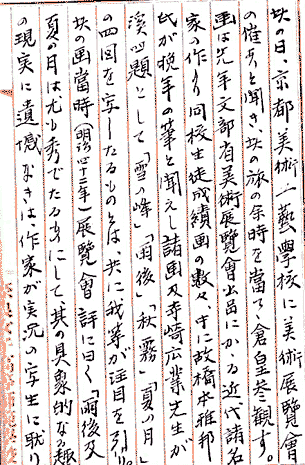 此の日、京都美術工藝學校に美術展覧會
の催しと聞き、此の旅の余時を當て、倉皇参観す。
画は先年文部省美術展覧會出品にかゝる近代諸名
家の作より同校生徒成績画の数々、中に故橋本雅邦
氏が晩年の筆と聞えし諸画及寺崎広業先生が
溪四題として「雪の峰」「雨後」「秋霧」「夏の月」
の四図を写したるものとは共に我等が注目を引けり。
此の画當時(明治四十二年)展覧會評に曰く「雨後及
夏の月は尤も秀でたるものにして、其の具象的なる趣
の現実に遺憾なきは、作家が実況の写生に耽り